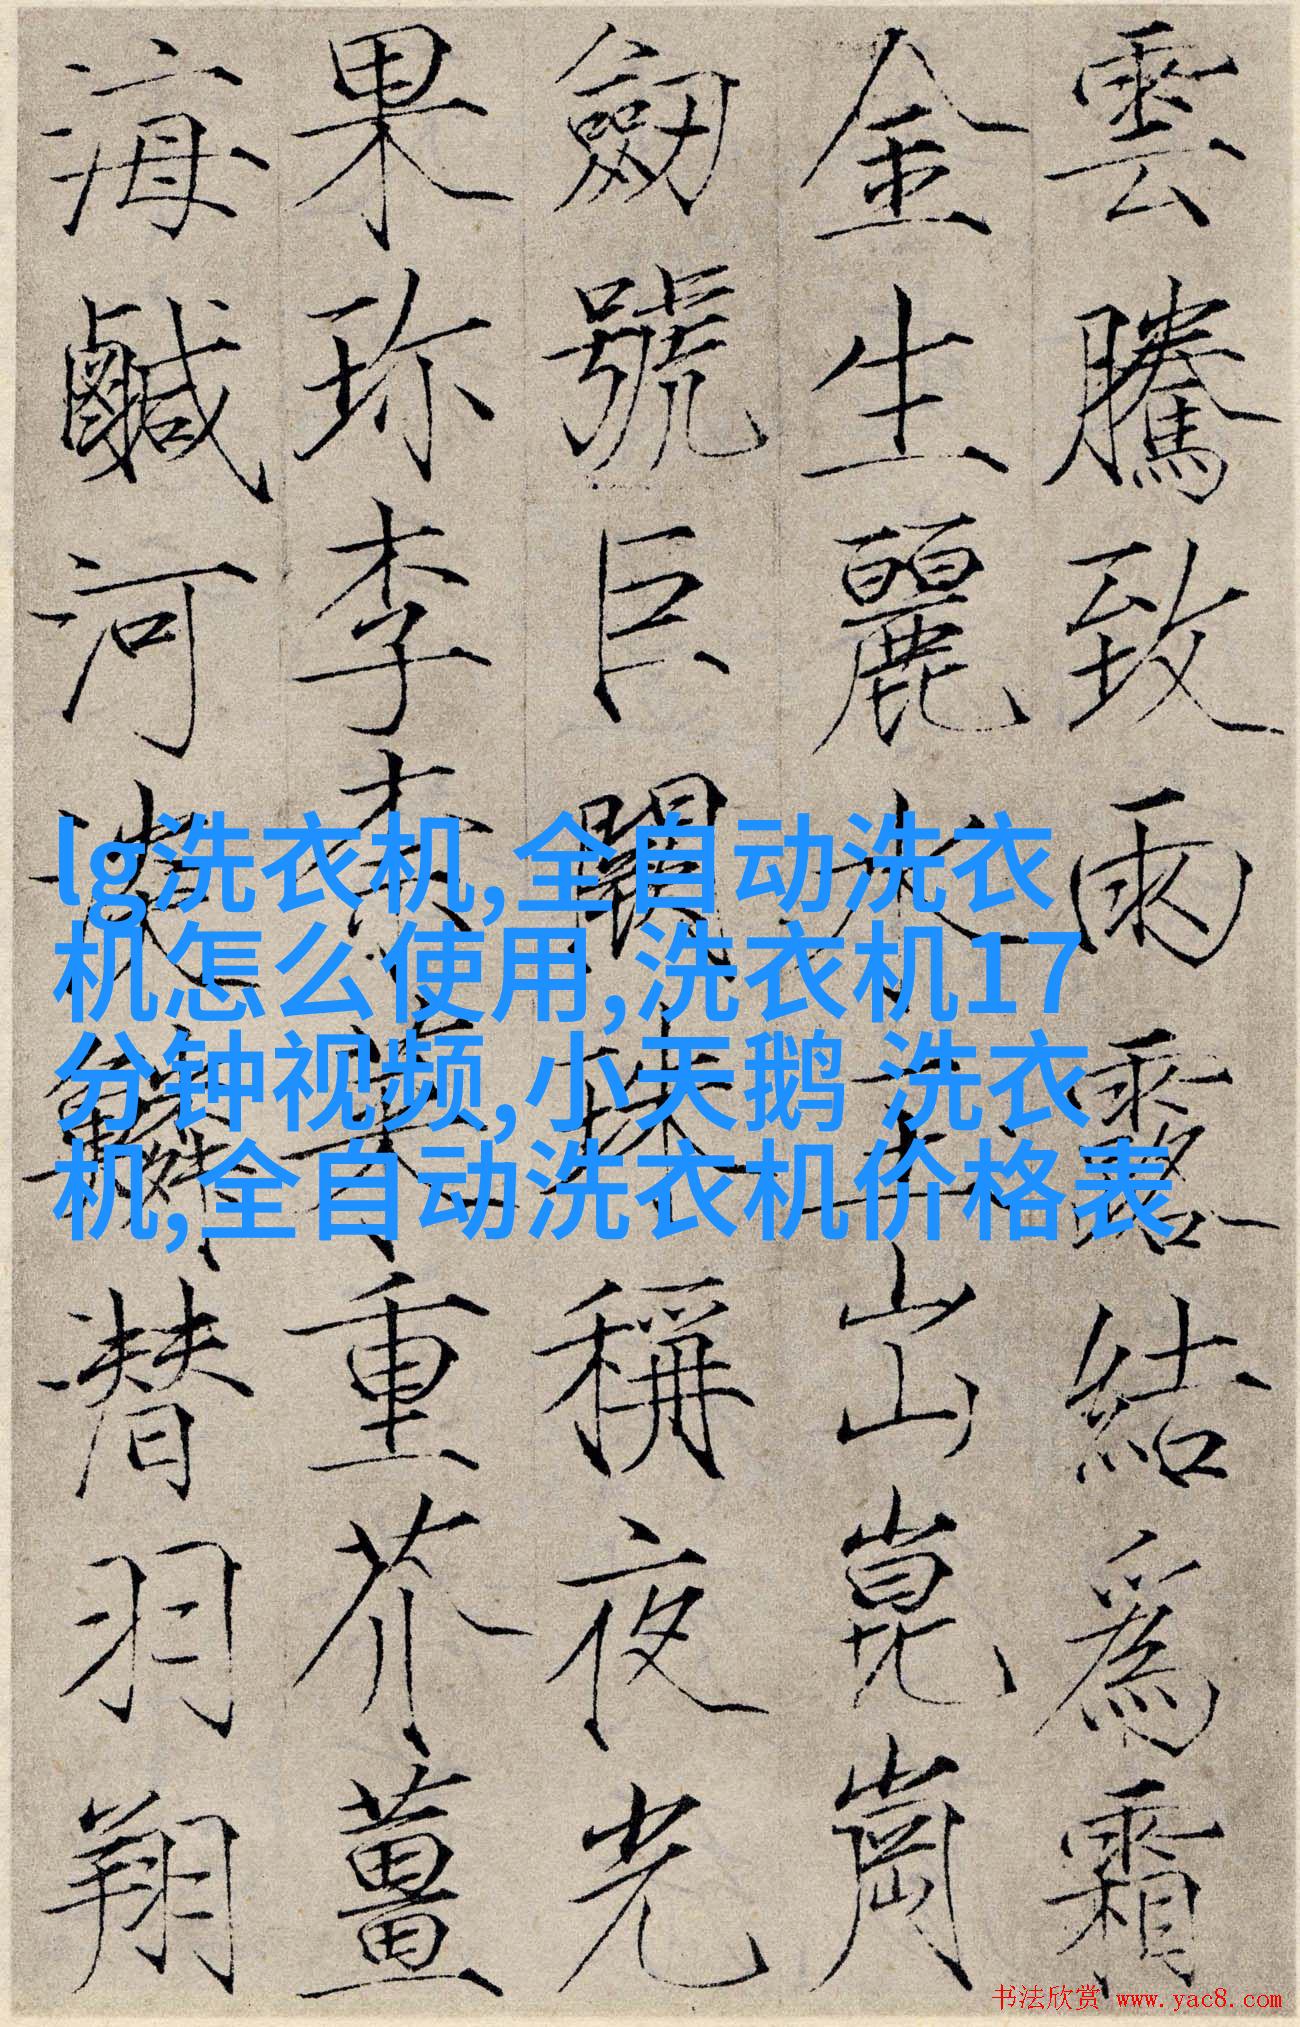 雲騰致雨露結爲霜
金生麗水玉出崑崗
劒號巨闕珠稱夜光
果珎李柰菜重芥薑
海鹹河淡鱗潜羽翔
lg洗衣机,全自动洗衣
机怎么使用,洗衣机17
分钟视频,小天鹅 洗衣
机,全自动洗衣机价格表
书法欣赏 www.yac8.com